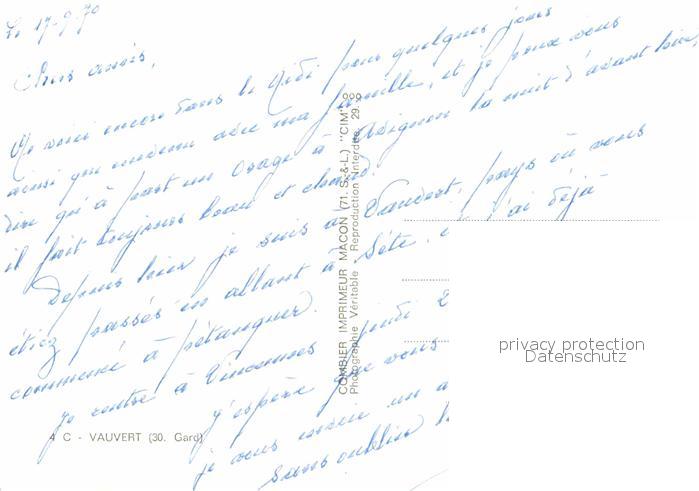 Le 17-9-70
Chers amis,
Me voici encore dans le Midi pour quelques jours
ainsi que ma famille, et je peux vous
dire qu'à part un orage à Avignon la nuit d'avant hier,
il fait toujours beau et chaud.
Depuis hier je suis à Vauvert, pays où vous
étiez passés en allant à Sète, j'ai déjà
commencé à pétanquer.
Je rentre à Vincennes jeudi 2
j'espère que vous
je vous envoie un
sans oublier
4 C - VAUVERT (30. Gard)
COMBIER IMPRIMEUR MACON (71. S.-&-L.) "CIM"
Photographie Véritable Reproduction Interdite. 29.
privacy protection
Datenschutz